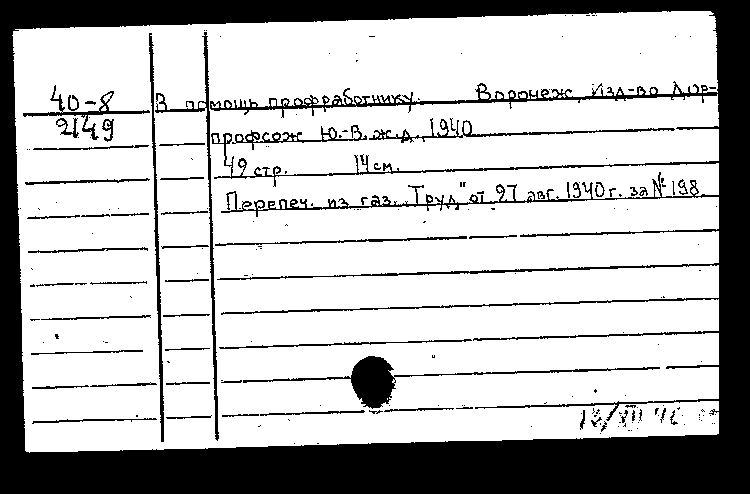 40-8
2149
В помощь профработнику. Воронеж, Изд-во Дор-
профсож Ю.-В. ж.д., 1940
49 стр. 14 см.
Перепеч. из газ. „Труд" от 27 авг. 1940 г. за № 198.
12/XII 46